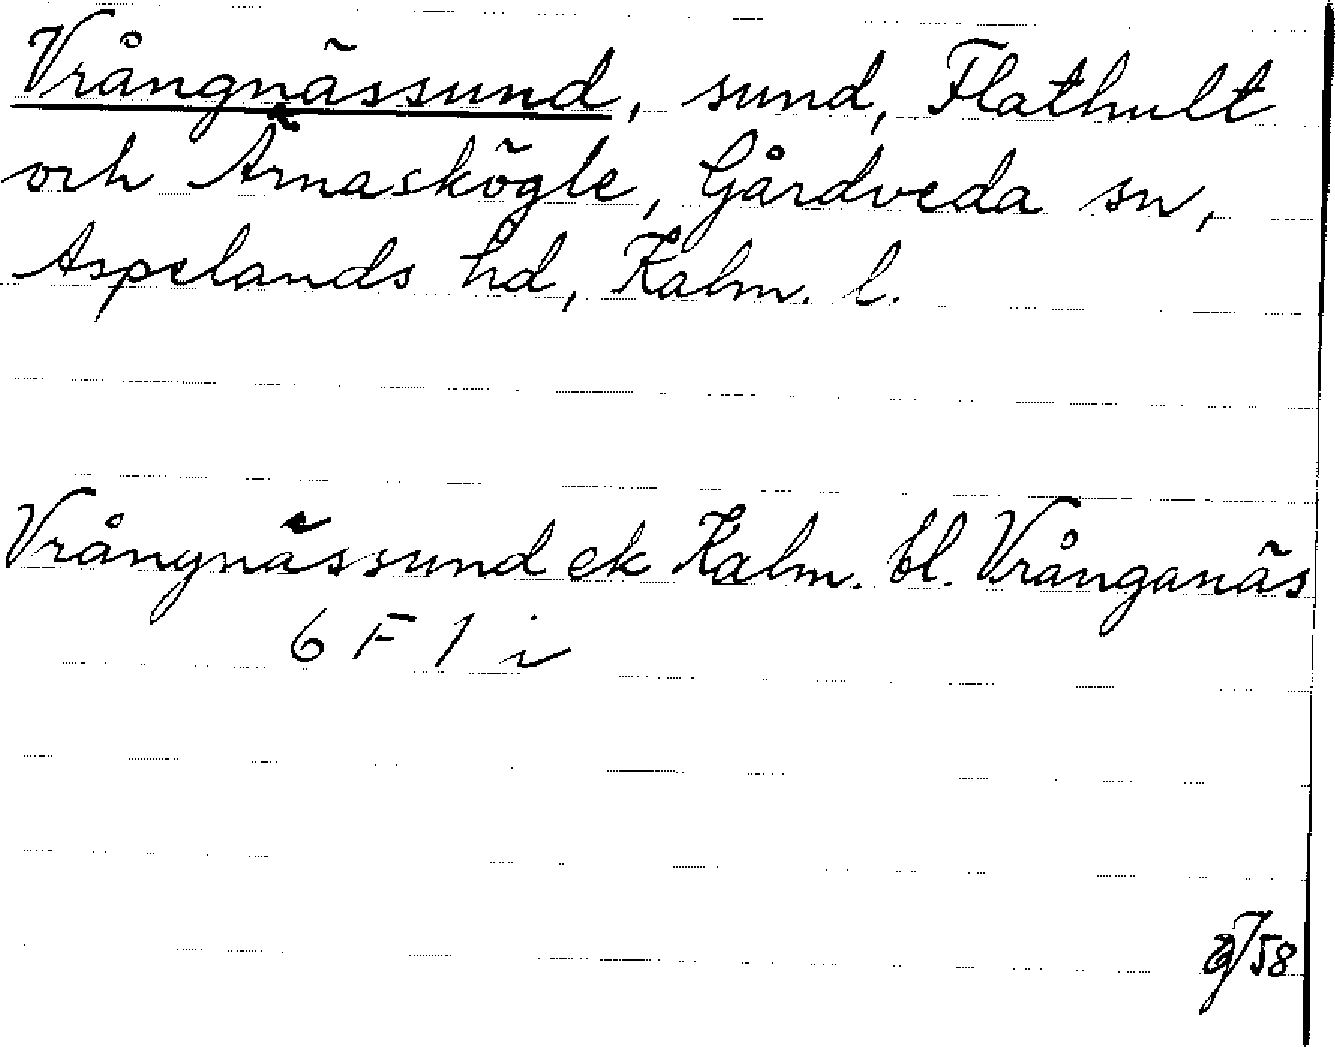 Vrångnässund, sund, Flathult
och Ärnaskögle, Gårdveda sn,
Aspelands hd, Kalm. l.
Vrångnässund ek Kalm. bl. Vrånganäs
6 F 1 i
58